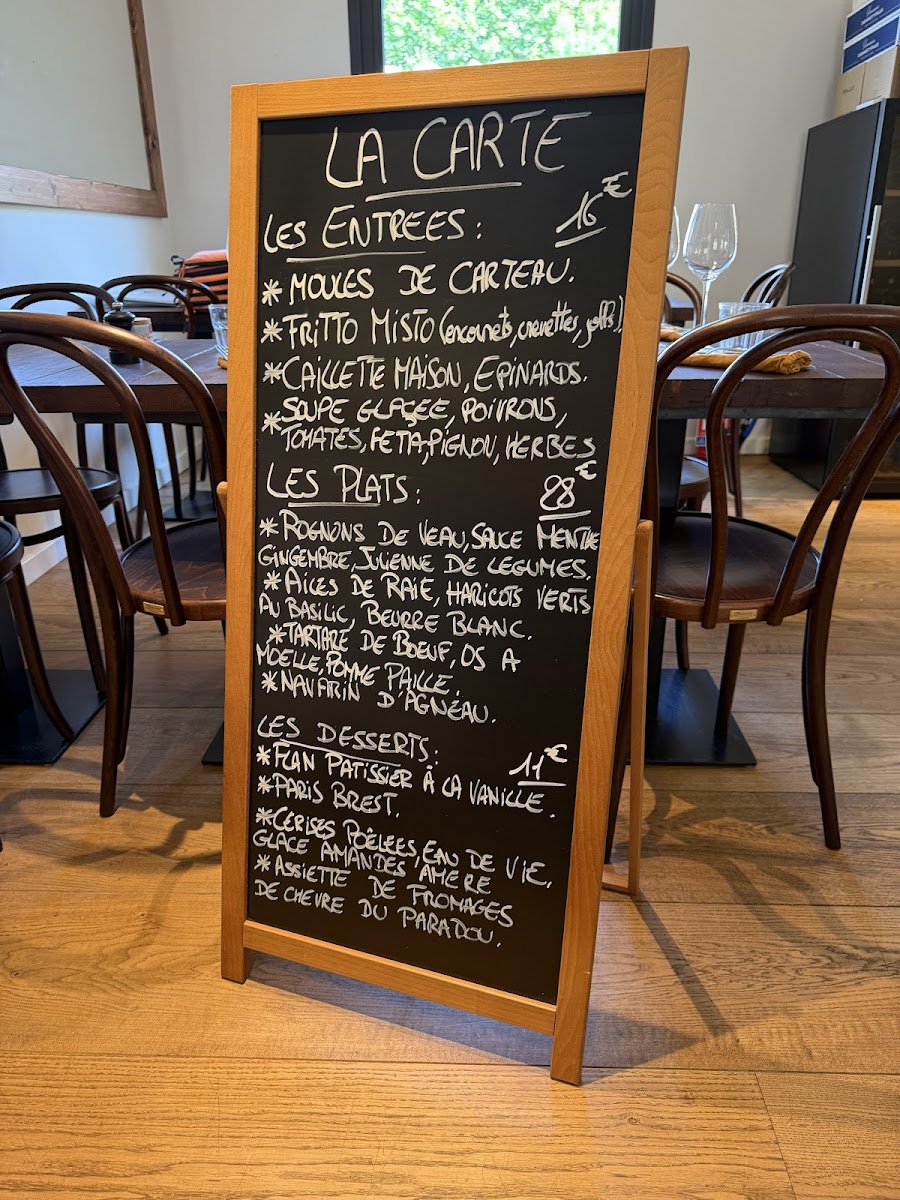 LA CARTE
LES ENTREES : 16€
* MOULES DE CARTEAU.
* FRITTO MISTO (encornets, crevettes, joels)
* CAILLETTE MAISON, EPINARDS.
* SOUPE GLAÇEE, POIVRONS,
TOMATES, FETA, PIGNON, HERBES
LES PLATS : 28€
* ROGNONS DE VEAU, SAUCE MENTHE
GINGEMBRE, JULIENNE DE LEGUMES.
* AILES DE RAIE, HARICOTS VERTS
AU BASILIC, BEURRE BLANC.
* TARTARE DE BOEUF, OS A
MOELLE, POMME PAILLE.
* NAVARIN D'AGNEAU.
LES DESSERTS : 11€
* FLAN PATISSIER À LA VANILLE.
* PARIS BREST.
* CERISES POÊLEES, EAU DE VIE,
GLACE AMANDES AMERE
* ASSIETTE DE FROMAGES
DE CHEVRE DU PARADOU.